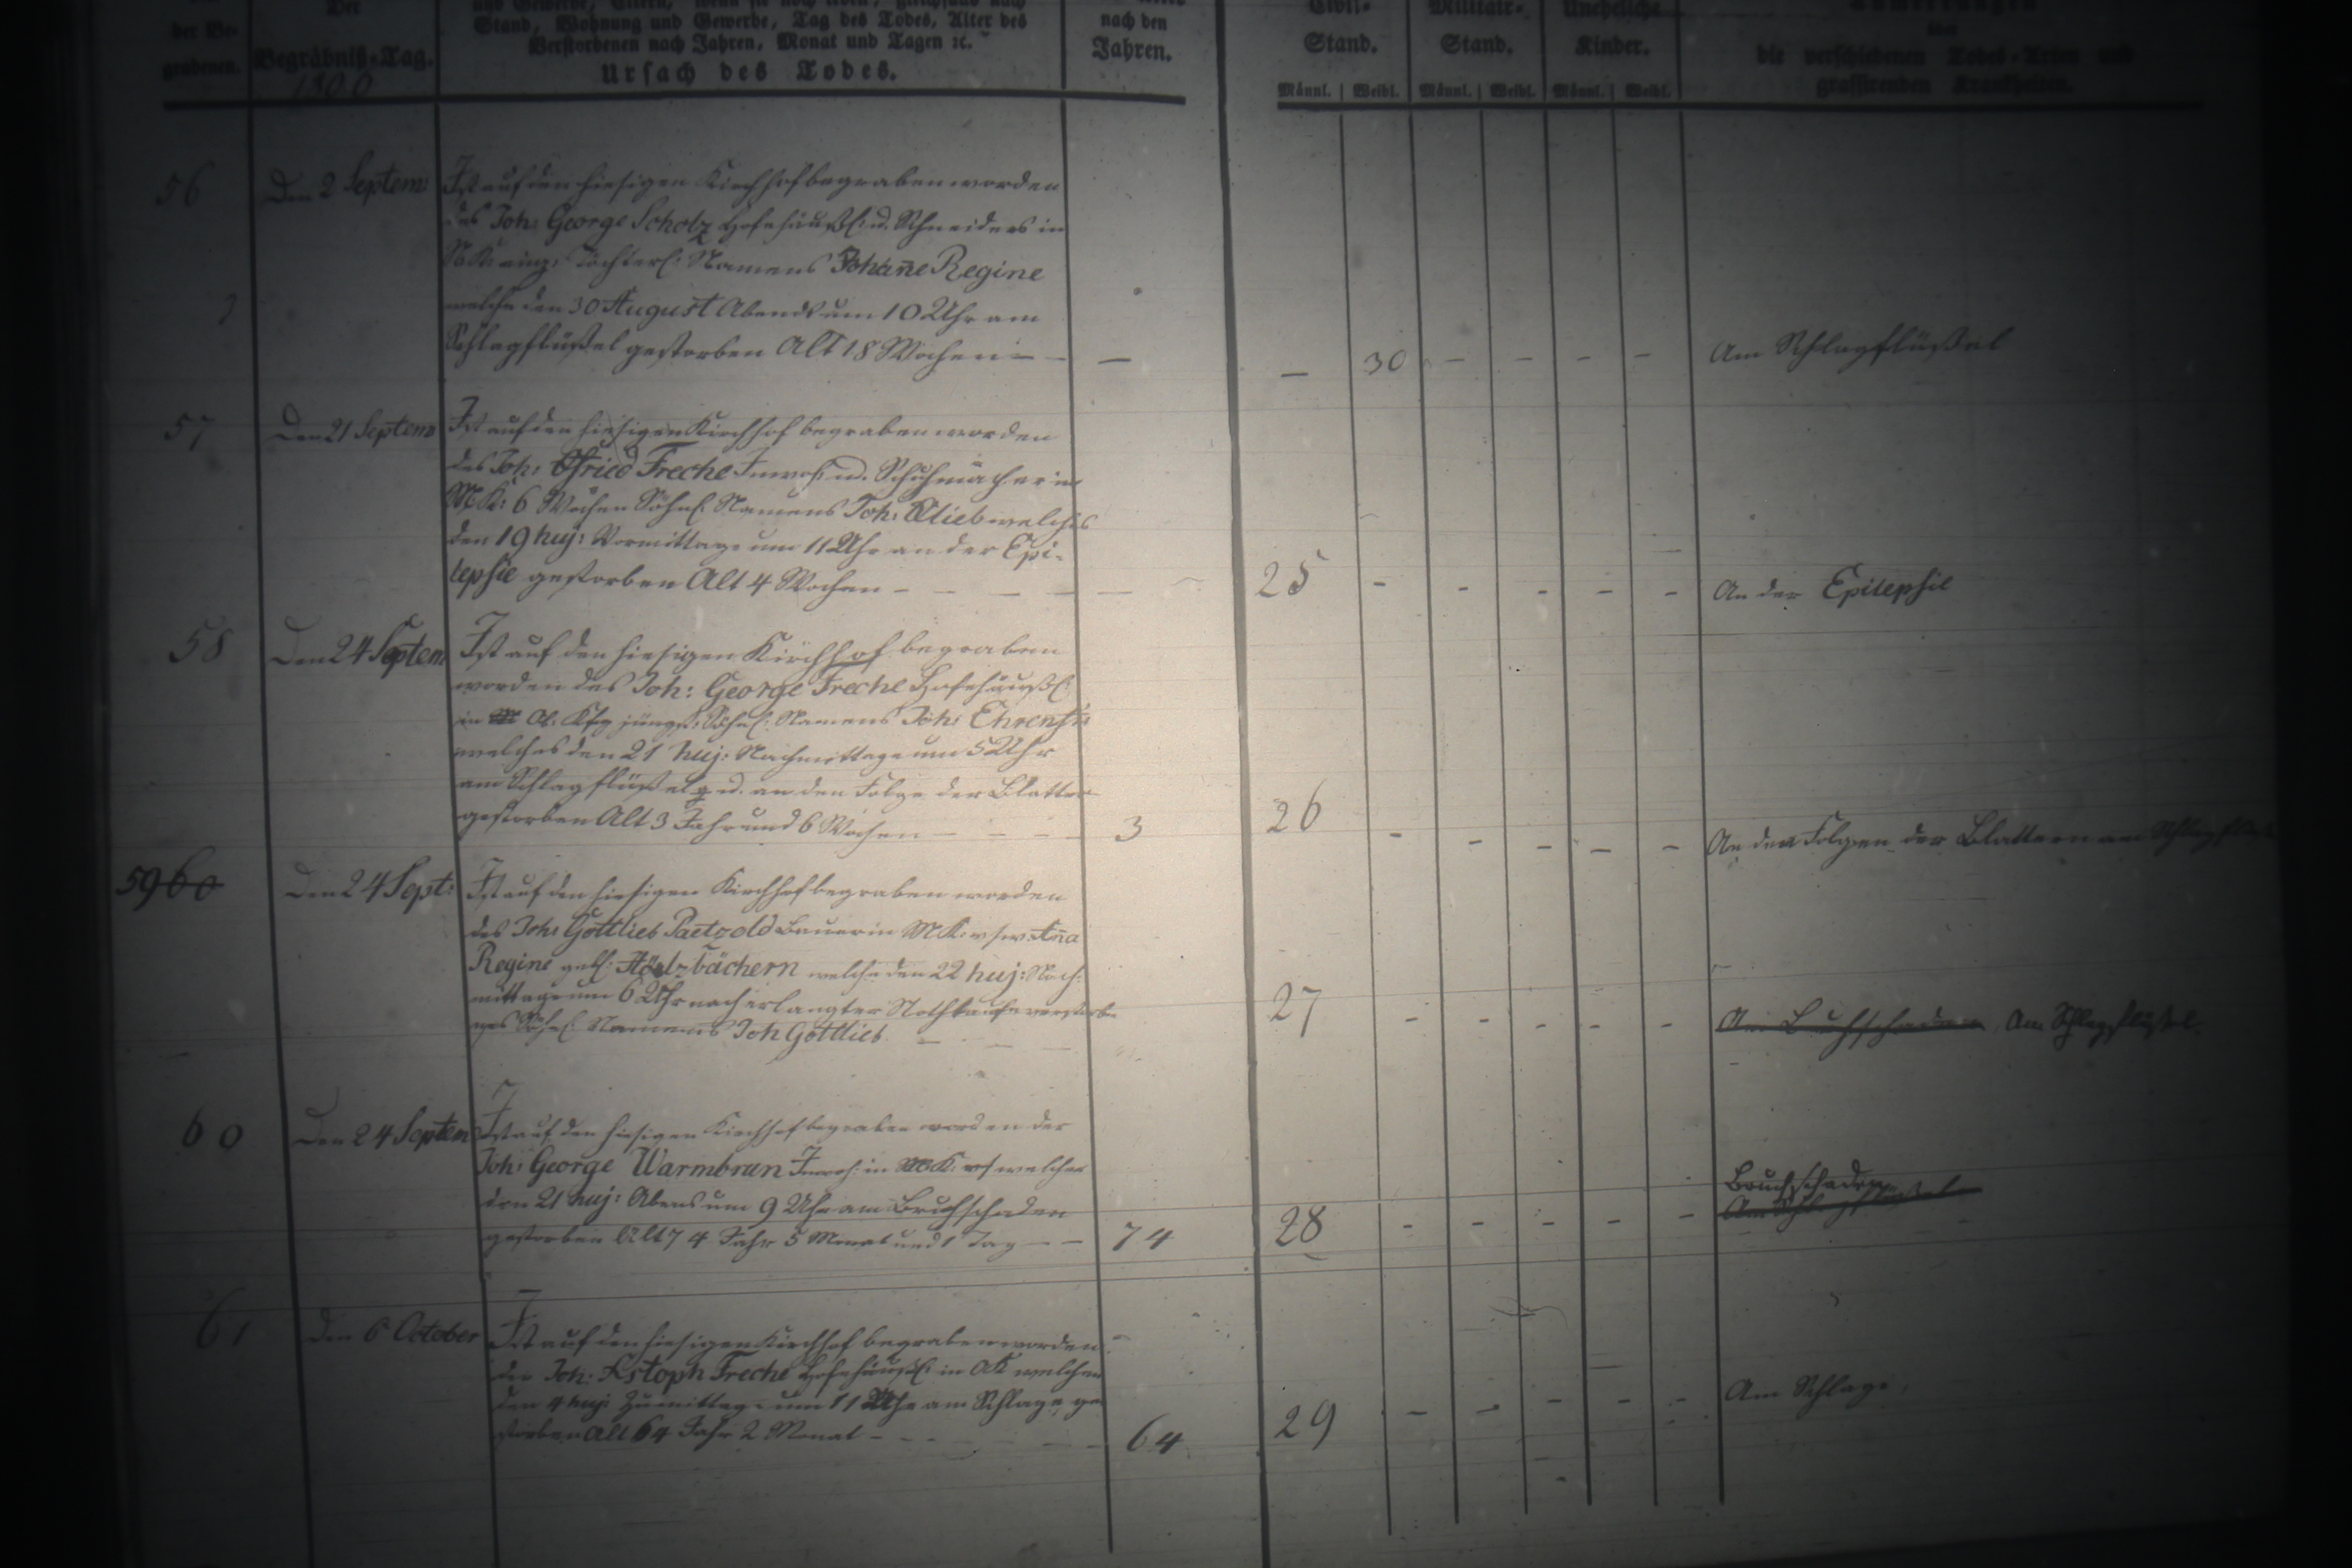 Der
der Be-
grabenen.
Begräbniß-Tag.
1800
und Gewerbe, Eltern, wenn sie noch leben, gleichfalls nach
Stand, Wohnung und Gewerbe, Tag des Todes, Alter des
Verstorbenen nach Jahren, Monat und Tagen ꝛc.
Ursach des Todes.
nach den
Jahren.
Civil-
Stand.
Militair-
Stand.
Uneheliche
Kinder.
Männl. Weibl. Männl. Weibl. Männl. Weibl.
Anmerkungen
über
die verschiedenen Todes-Arten und
grassirenden Krankheiten.
56
Den 2 Septem:
Ist auf den hiesigen Kirchhof begraben worden
des Joh: George Scholz Hofehäußl: u. Schneiders in
einz: Töchterl: Namens Johañe Regine
welche den 30 August Abends um 10 Uhr am
Schlagflüßel gestorben Alt 18 Wochen — —
—
— 30 — — — —
Am Schlagflüßel
57
Den 21 Septem
Ist auf den hiesigen Kirchhof begraben worden
des Joh: Gfried Freche Inwoh: u. Schuhmacher in
MK: 6 Wochen Söhnl: Namens Joh: Gtlieb welches
den 19 huj: Vormittage um 11 Uhr an der Epi-
lepsie gestorben Alt 4 Wochen — — — —
—
25 - - - - -
An der Epilepsie
58
Den 24 Septem
Ist auf den hiesigen Kirchhof begraben
worden des Joh: George Freche Hofehäußl:
in jüngst: Söhnl: Namens Joh: Ehrenfr:
welches den 21 huj: Nachmittage um 5 Uhr
am Schlagflüßel u. an den Folge der Blattern
gestorben Alt 3 Jahr und 6 Wochen — — — —
3
26 - - - - -
An den Folgen der Blattern am
59 60
Den 24 Sept:
Ist auf den hiesigen Kirchhof begraben worden
des Joh: Gottlieb Paetzold Bauer in MK: Añа
Regine geb: welche den 22 huj: Nach-
mittage um 6 Uhr nach erlangter Nothtaufe verstorbe-
nes Söhnl: Namens Joh Gottlieb — — —
27 - - - - -
Am Bruchschaden Am Schlagflüßel
60
Den 24 Septem
Ist auf den hiesigen Kirchhof begraben worden der
Joh: George Warmbrun Inwoh: in welcher
den 21 huj: Abens um 9 Uhr am Bruchschaden
gestorben Alt 74 Jahr 5 Monat und 1 Tag — —
74
28 - - - - -
Bruchschaden
Am Schlagflüßel
61
Den 6 October
Ist auf den hiesigen Kirchhof begraben worden
der Joh: Xstoph Freche Hofehäußl: in OK welcher
den 4 huj: um 11 Uhr am Schlage ge-
storben Alt 64 Jahr 2 Monat - - - —
64
29 - - - - -
Am Schlage